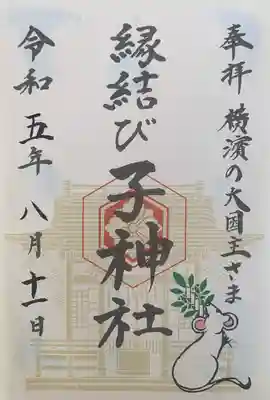 奉拝 横濱の大国主さま
縁結び子神社
令和五年八月十一日